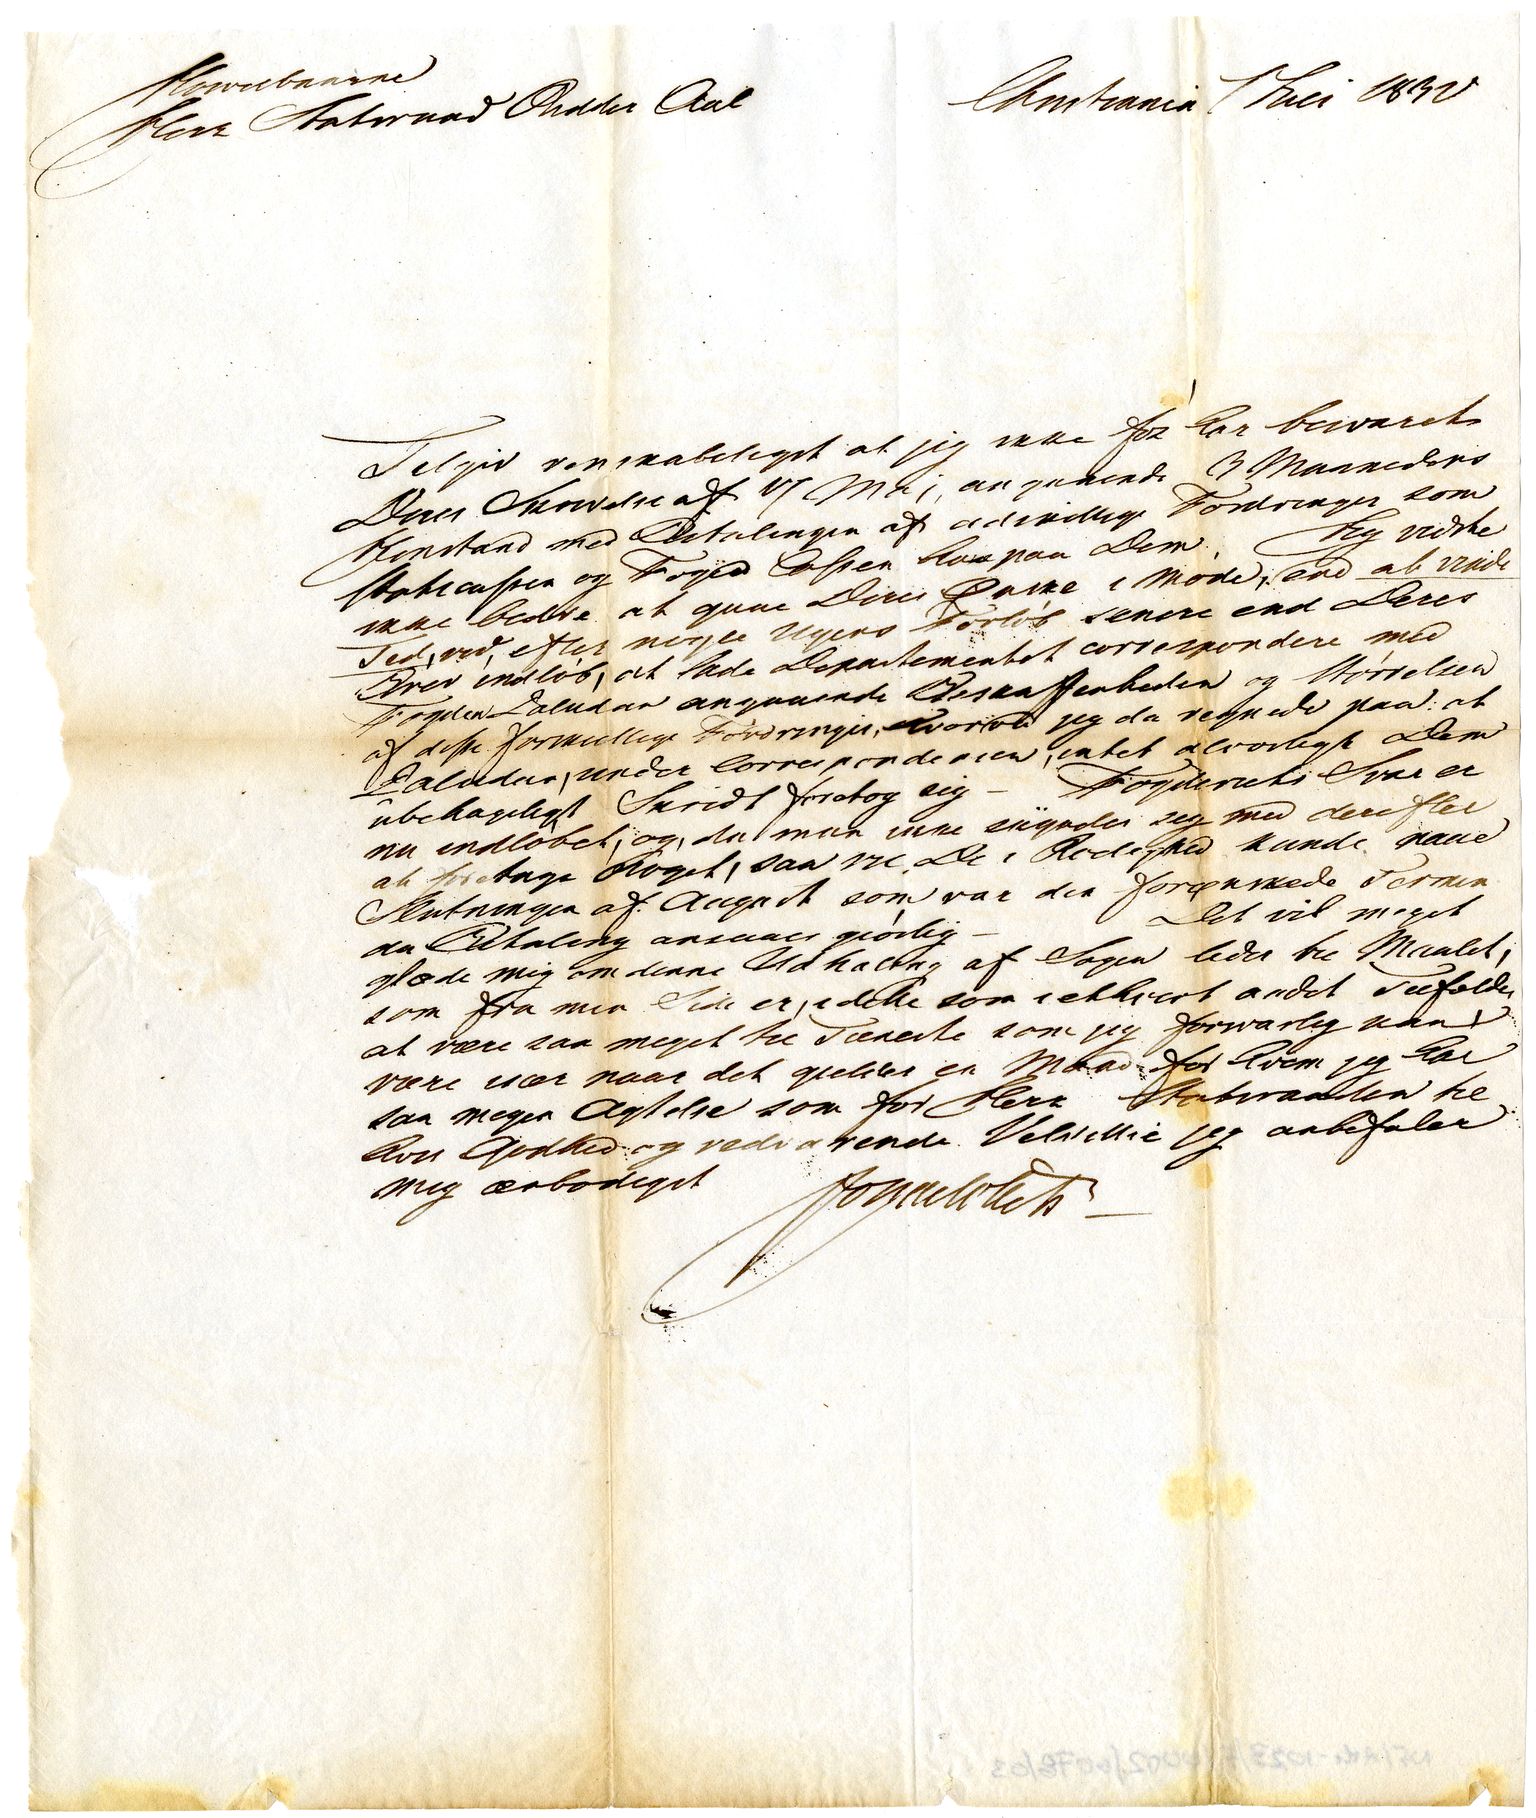 Høivelbaarne
Herr Statsraad Ridder Aal
Christiania 7 Juli 1832
Tilgiv venskabeligst at jeg ikke før har besvaret
Deres Skrivelse af 17 Mai, angaaende 3 Maaneders
Henstand med Betalingen af adskillige Fordringer som
Statscassen og Foged Cassen har paa Dem. Jeg vidste
ikke bedre at gaae Deres Ønske i Møde, end at vinde
Tid, ved, efter nogle Ugers Forløb senere end Deres
Brev indløb, at lade Departementet correspondere med
Fogden Paludan angaaende Beskaffenheden og Størrelsen
af disse forskiellige Fordringer, hvorved jeg da regnede paa: at
Paludan, under Correspondencen, intet alvorligt Dem
ubehageligt Skridt foretog sig – Fogderiets Svar er
nu indløbet, og, da man ikke skynder seg med derefter
at foretage Noget, saa vil De i Rolighed kunde naae
Slutningen af August som var den forønskede Termin
da Betaling ansaaes giørlig – Det vil meget
glæde mig om denne Udhaling af Sagen leder til Maalet,
som fra min Side er, i dette som i ethvert andet Tilfælde,
at være saa meget til Tieneste som jeg forsvarlig kan
være især naar det gielder en Mand for hvem jeg har
saa megen Agtelse som for Herr Statsraaden til
hvis Godhed og vedvarende Velvillie jeg anbefaler
mig ærbødigst